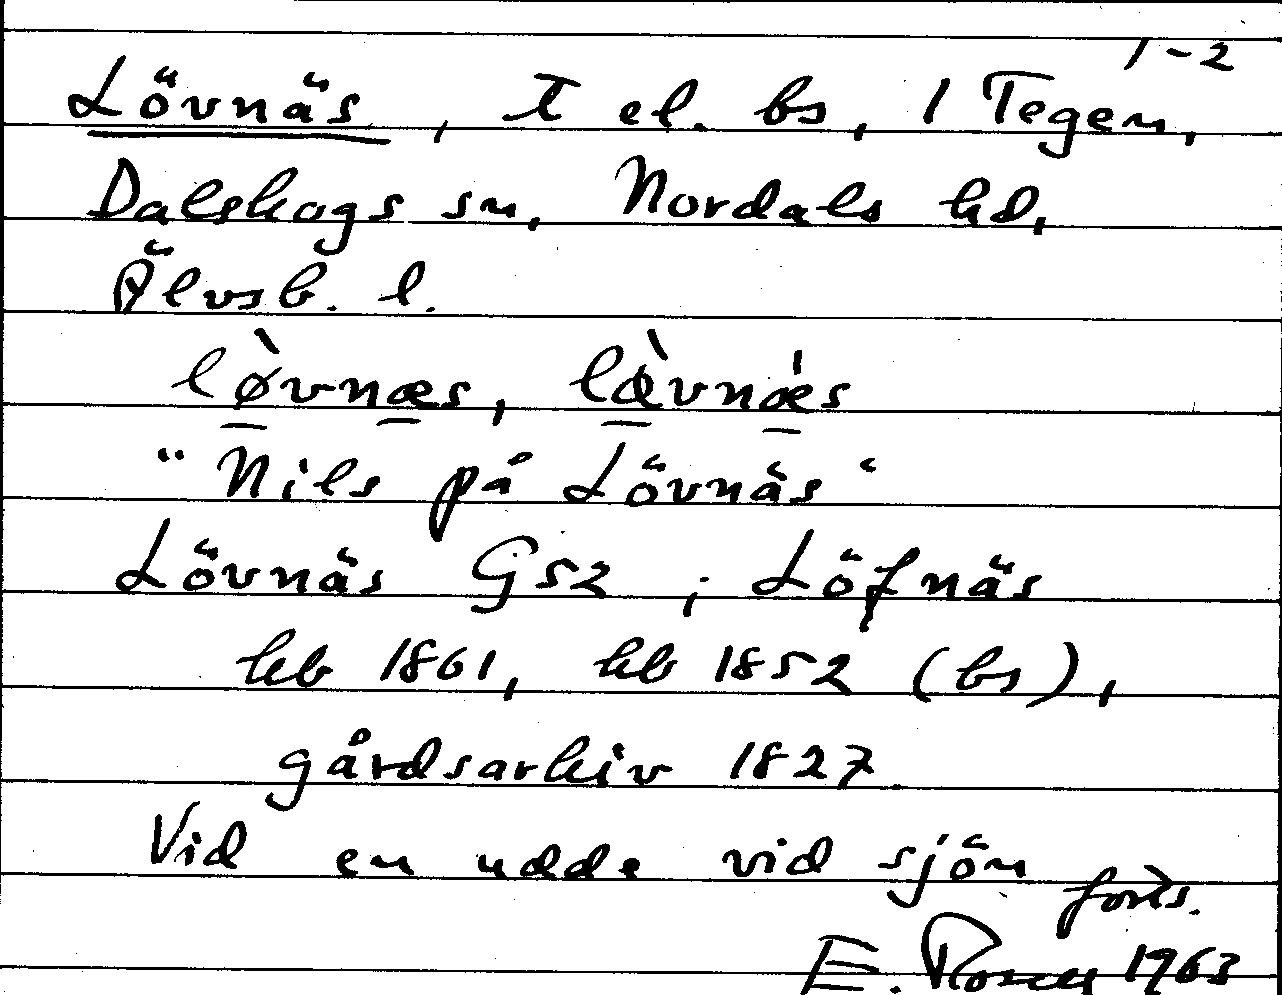 1-2
Lövnäs, T el. bs, 1 Tegen,
Dalskogs sn, Nordals hd,
Älvsb. l.
lø̀vnæs, læ̀vnæ̍s
"Nils på Lövnäs"
Lövnäs GS2; Löfnäs
hb 1861, hb 1852 (bs),
gårdsarkiv 1827
Vid en udde vid sjön
forts.
E. 1963